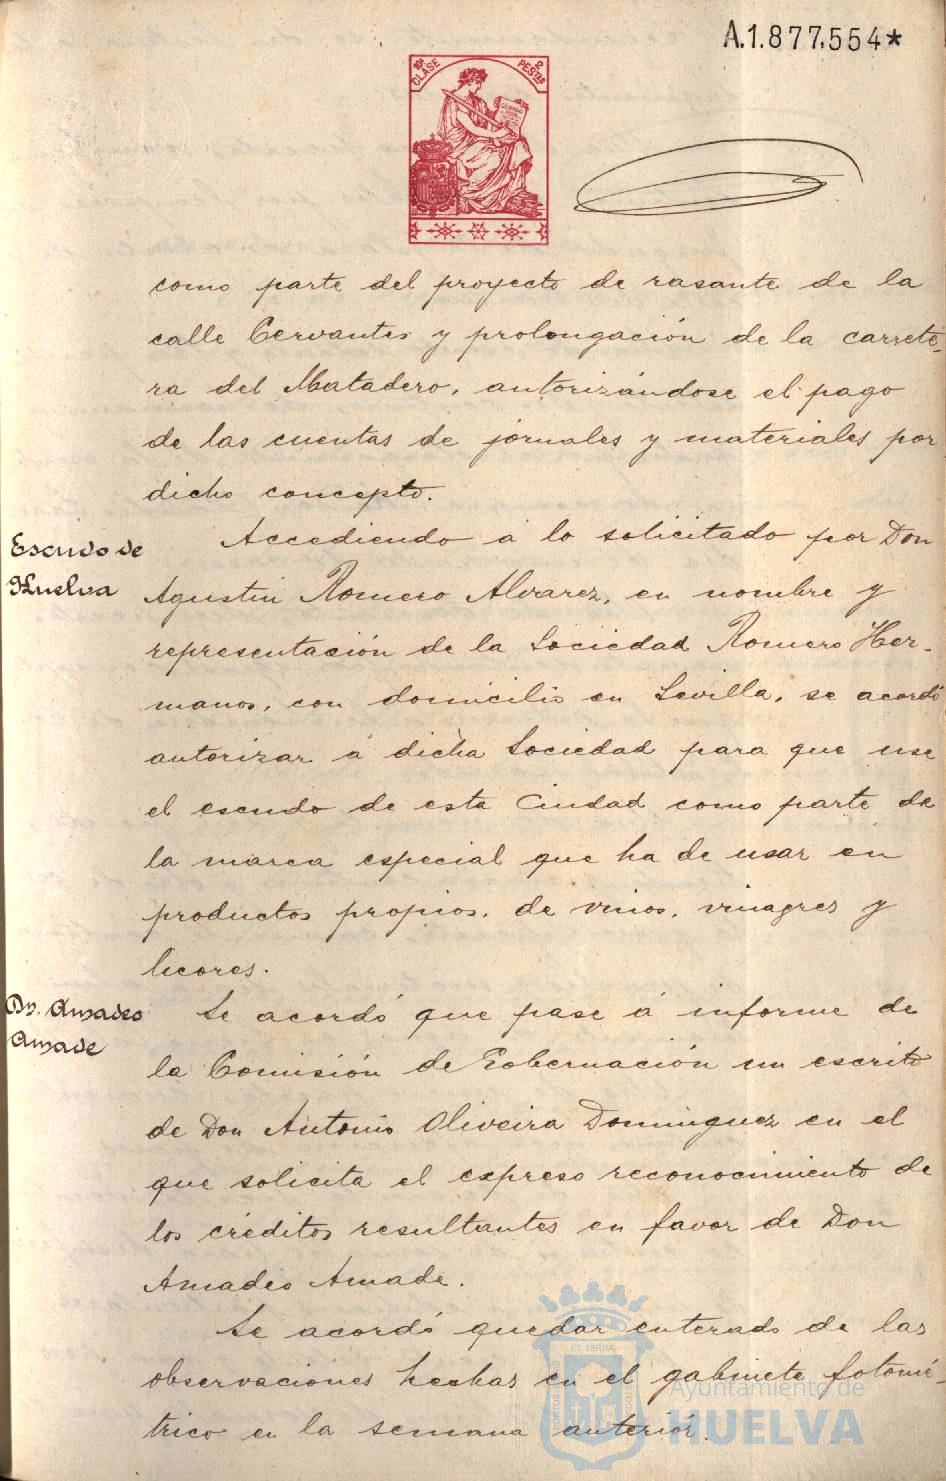 A.1.877.554*
10ª CLASE 2 PESTAS
CODIGO
como parte del proyecto de rasante de la
calle Cervantes y prolongación de la carrete-
ra del Matadero, autorizándose el pago
de las cuentas de jornales y materiales por
dicho concepto.
Escudo de
Huelva
Accediendo á lo solicitado por Don
Agustin Romero Alvarez, en nombre y
representación de la Sociedad Romero Her-
manos, con domicilio en Sevilla, se acordó
autorizar á dicha Sociedad para que use
el escudo de esta Ciudad como parte de
la marca especial que ha de usar en
productos propios, de vinos, vinagres y
licores.
Dn. Amadeo
Amade
Se acordó que pase á informe de
la Comisión de Gobernación un escrito
de Don Antonio Oliveira Dominguez en el
que solicita el expreso reconocimiento de
los créditos resultantes en favor de Don
Amadeo Amade.
Se acordó quedar enterado de las
observaciones hechas en el gabinete fotomé-
trico en la semana anterior.
ET TERRA
Ayuntamiento de
HUELVA